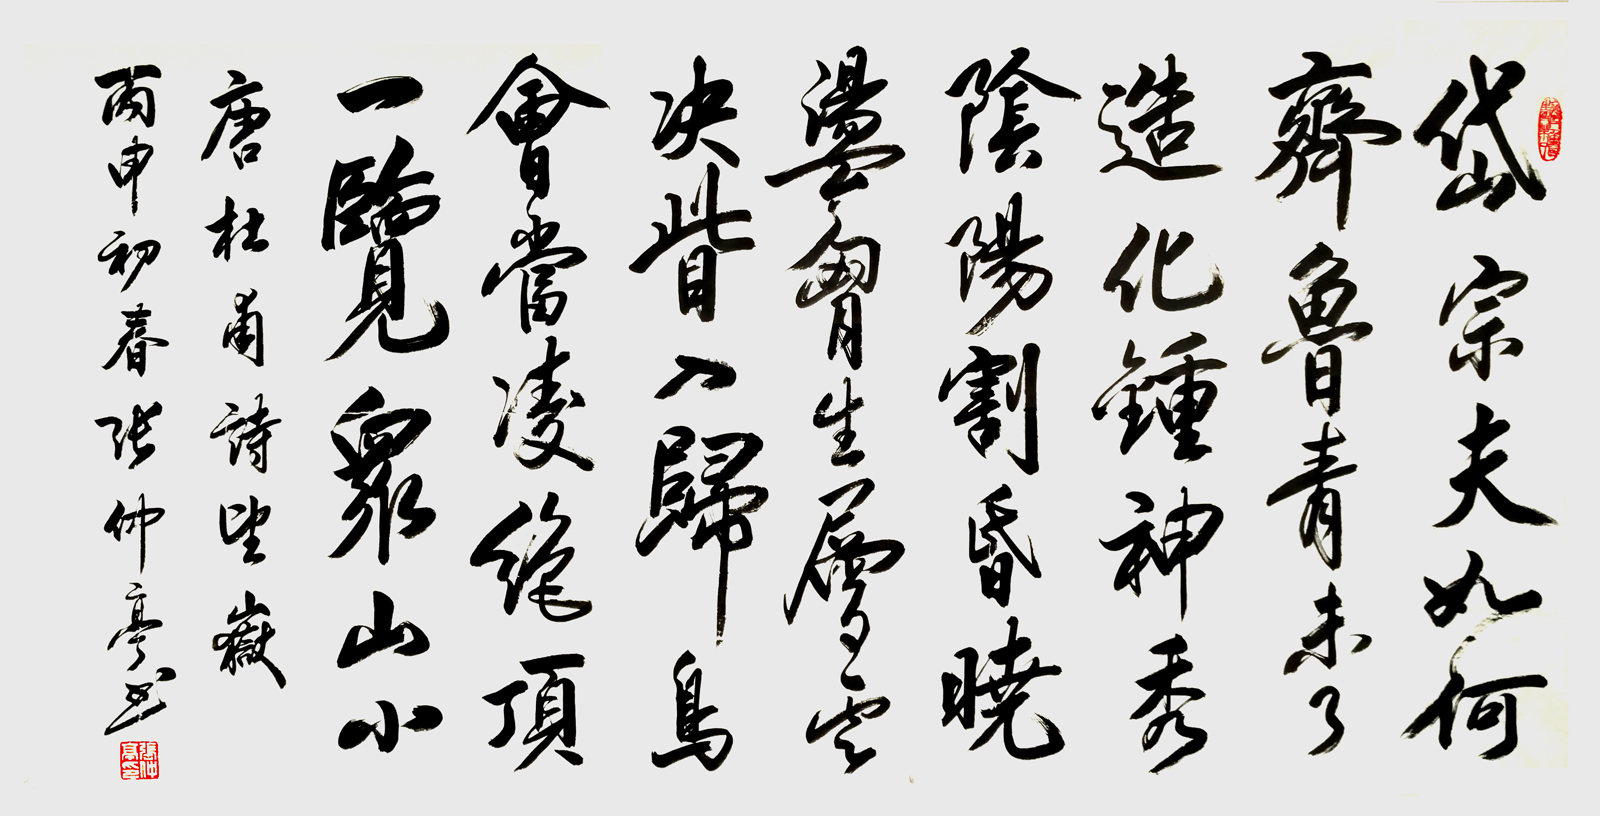 岱宗夫如何
齊魯青未了
造化鍾神秀
陰陽割昏曉
盪胷生層雲
决眥入歸鳥
會當凌絶頂
一覽眾山小
唐杜甫詩望嶽
丙申初春张仲亭书
張仲亭印